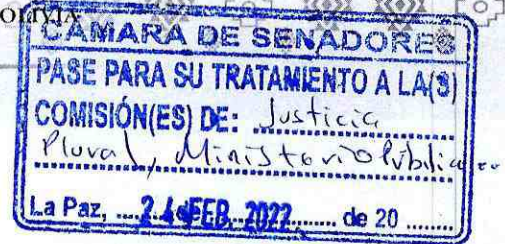 OLIVIA
CÁMARA DE SENADORES
PASE PARA SU TRATAMIENTO A LA(S)
COMISIÓN(ES) DE: Justicia
Plural, Ministerio Públic...
La Paz, ..... 24 FEB. 2022 ..... de 20 ........